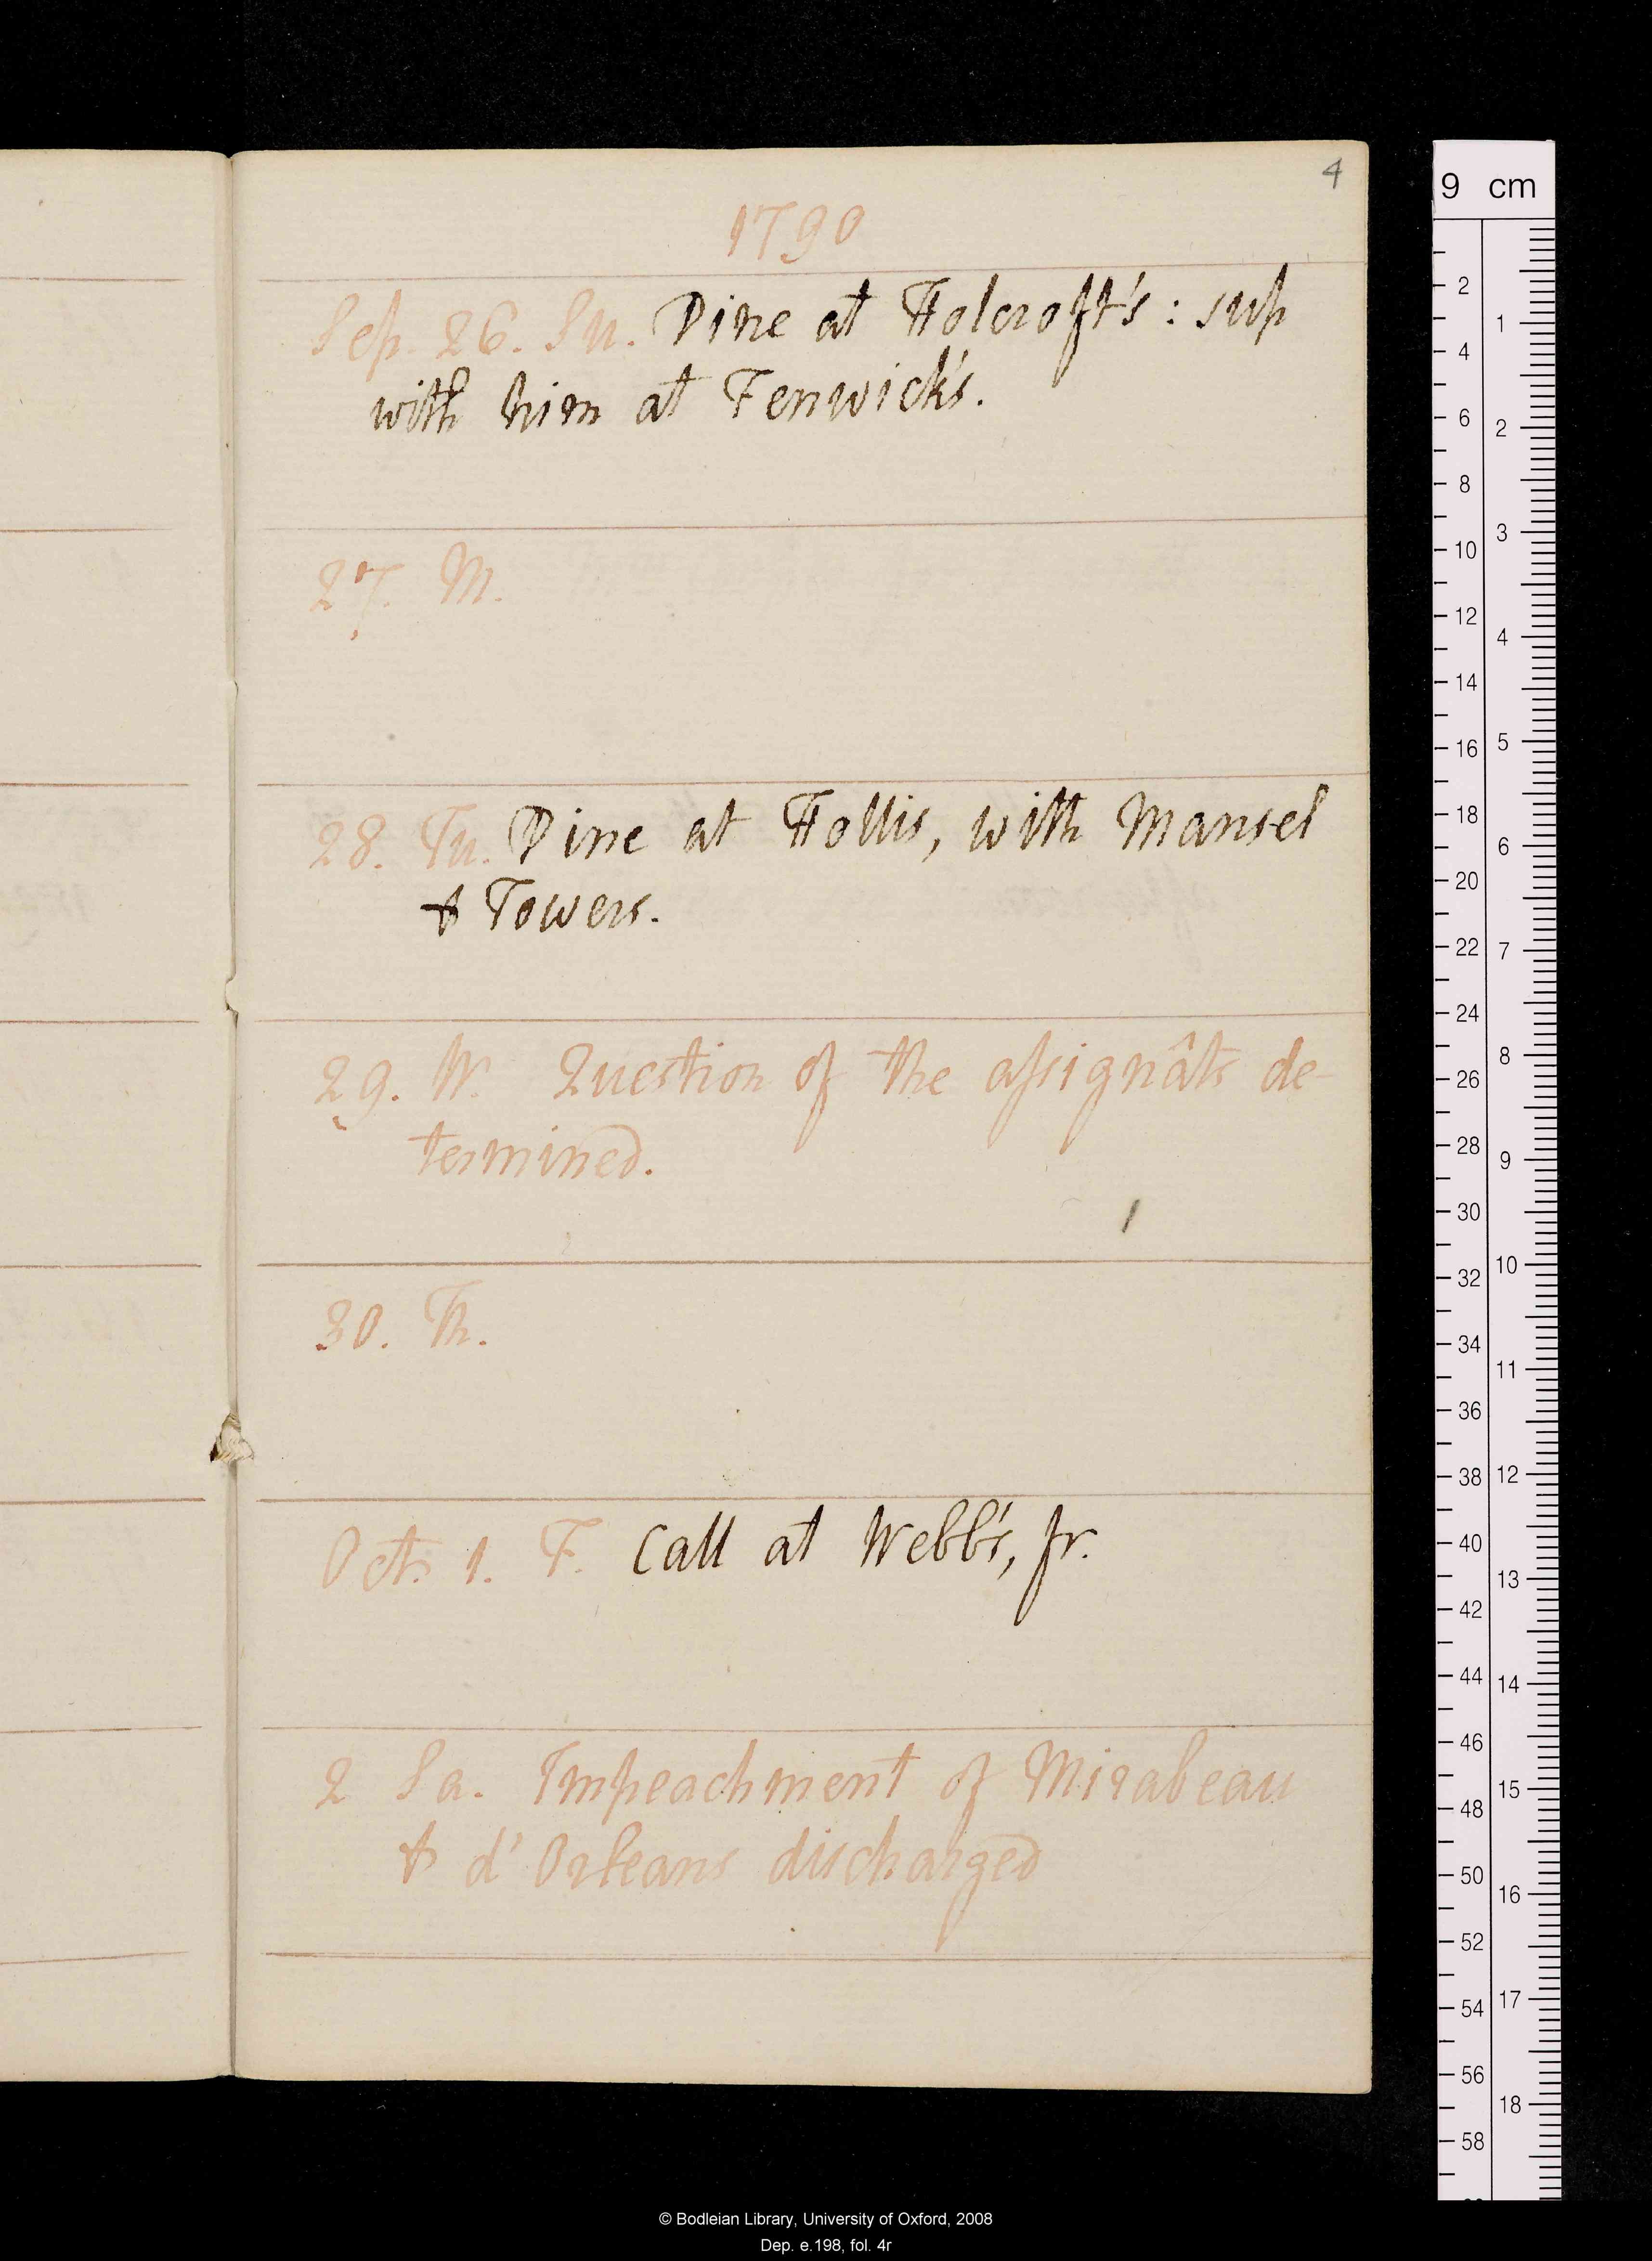 4
1790
Sep. 26. Su. Dine at Holcroft's : sup
with him at Fenwick's.
27. M.
28. Tu. Dine at Hollis, with Mansel
& Towers.
29. W. Question of the assignâts de-
termined.
30. Th.
Oct. 1. F. Call at Webb's, jr.
2 Sa. Impeachment of Mirabeau
& d'Orleans discharged
9 cm
2
4
6
8
10
12
14
16
18
20
22
24
26
28
30
32
34
36
38
40
42
44
46
48
50
52
54
56
58
1
2
3
4
5
6
7
8
9
10
11
12
13
14
15
16
17
18
© Bodleian Library, University of Oxford, 2008
Dep. e.198, fol. 4r